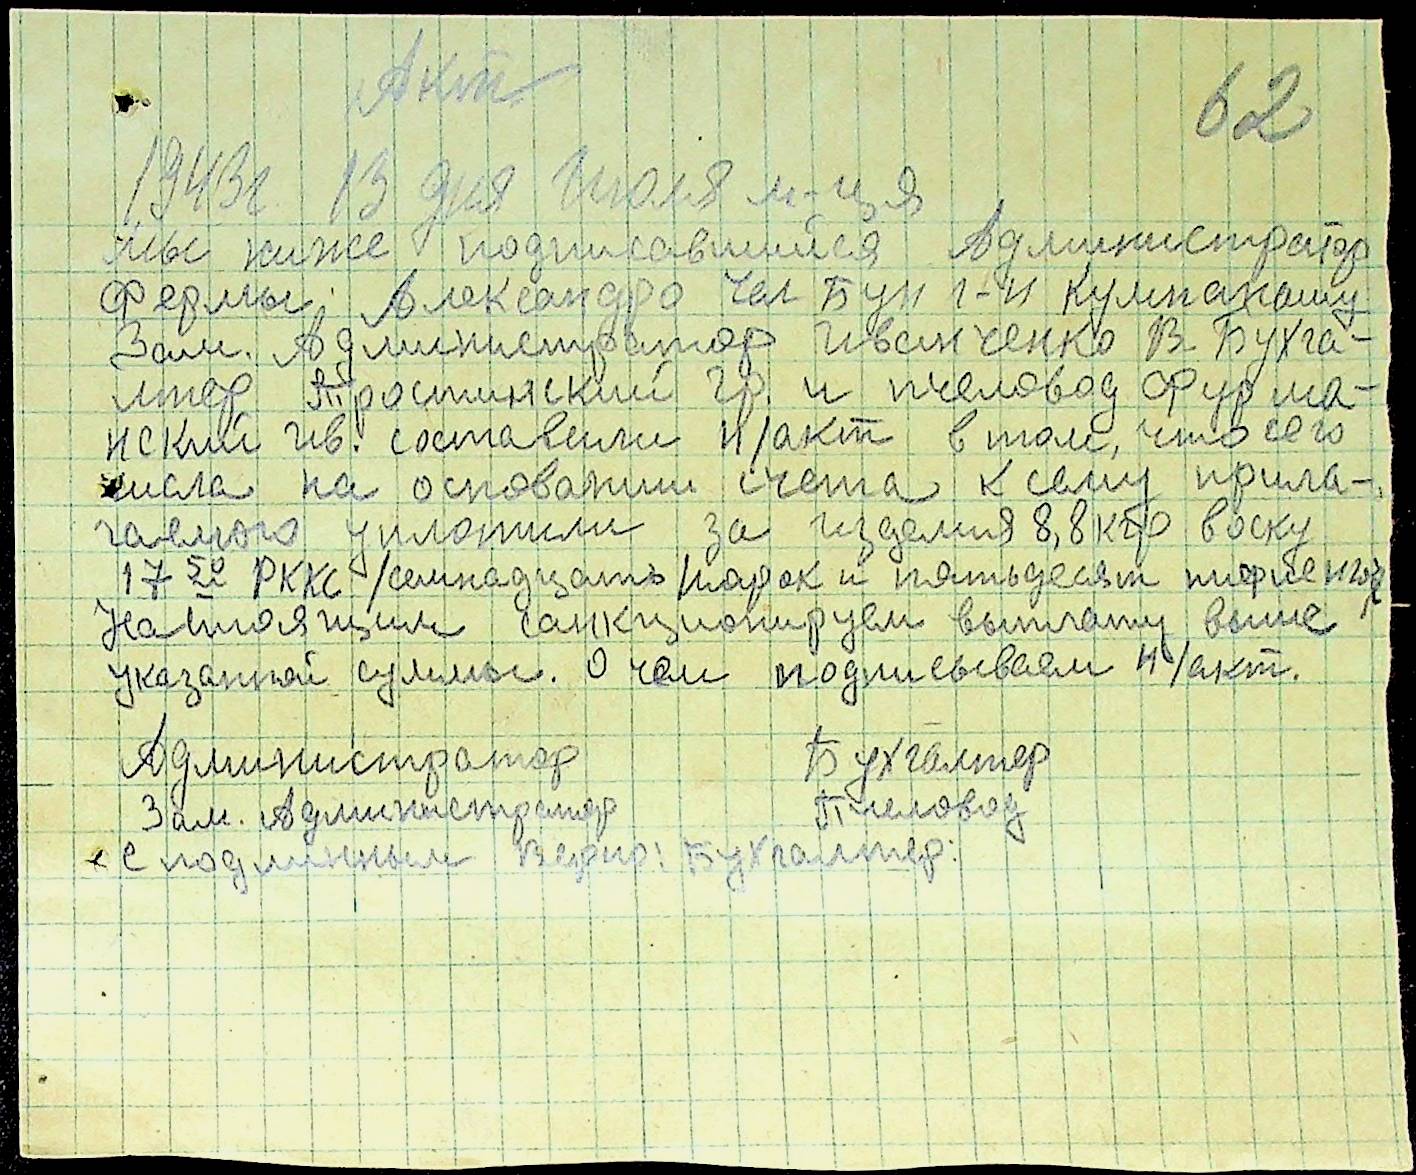 Акт
62
1943г. 13 дня Июля м-ця
мы ниже подписавшийся Администратор
Фермы. Александро чел Бун г-н Кумпанашу
Зам. Администратор Иванченко В Бухга-
лтер Тростинский Гр. и пчеловод Фурма-
нский Ив. составили н/акт в том, что сего
числа на основании счета к сему прила-
гаемого уплотили за изделия 8,8 кгр воску
17 50 РККС /семнадцать/марок и пятьдесят пифленгов
Настоящим санкционируем выплату выше
указанной суммы. О чем подписываем н/акт.
Администратор Бухгалтер
Зам. Администратор Пчеловод
с подлинным Верно: Бухгалтер: